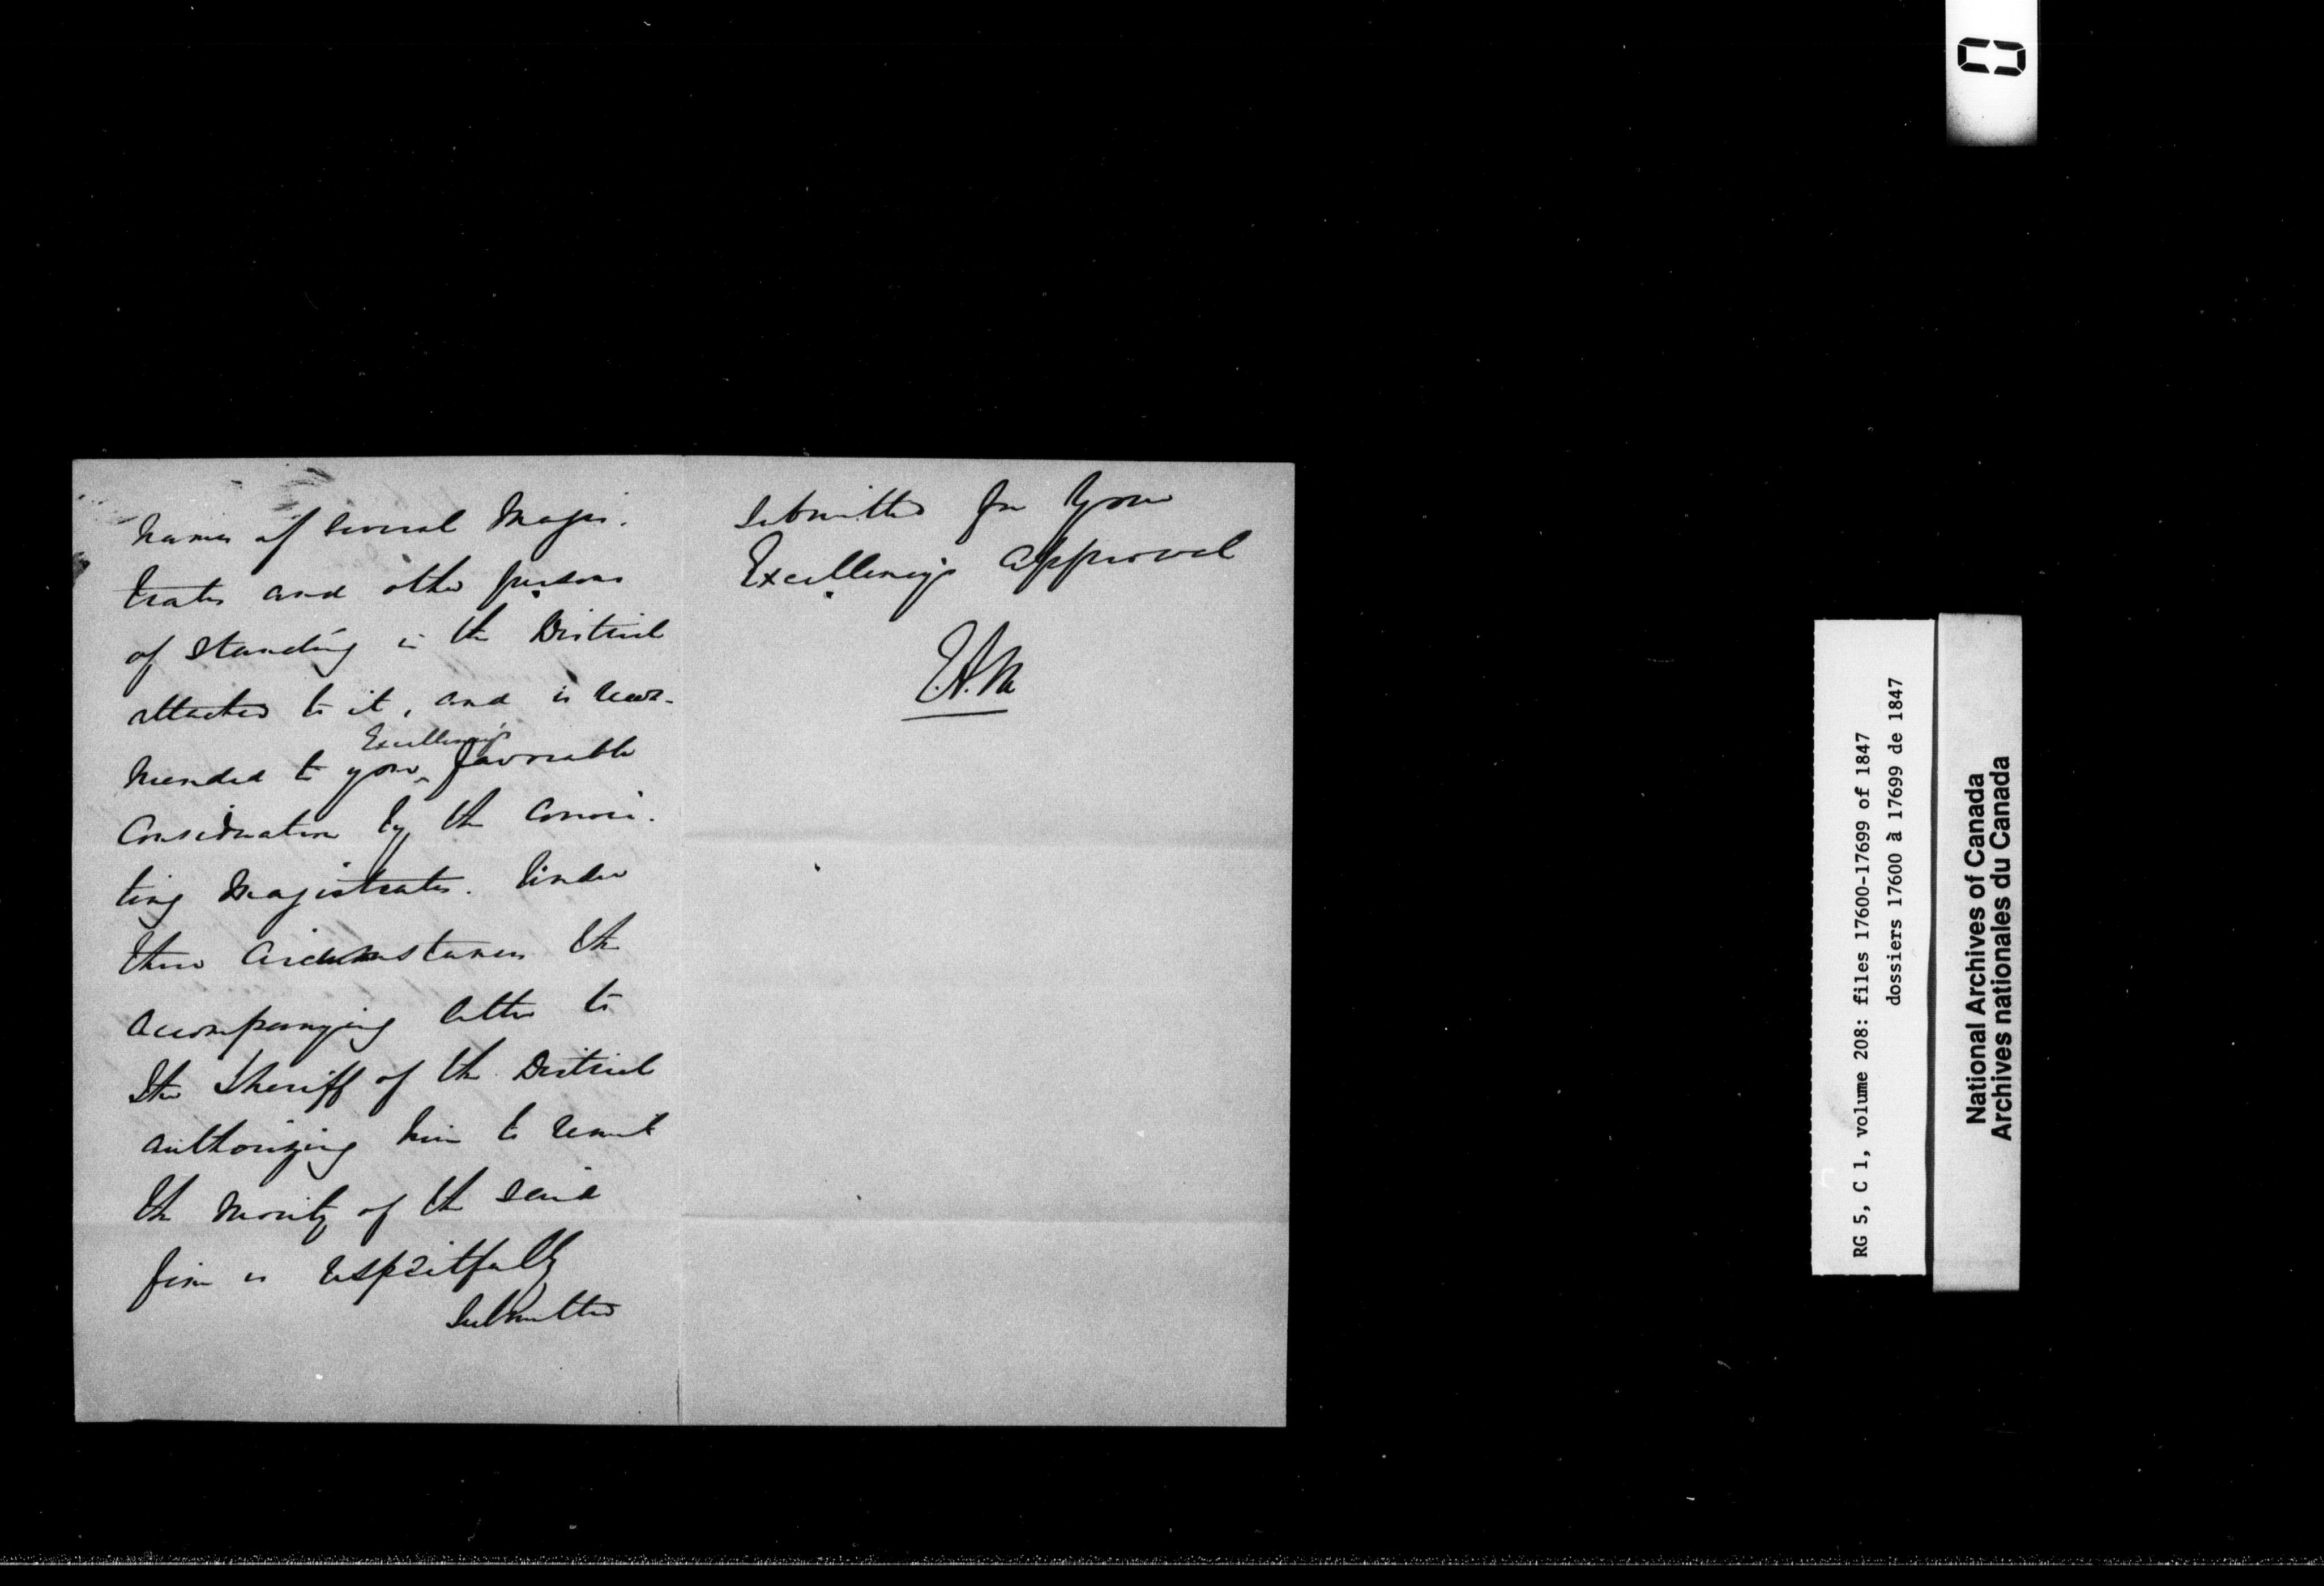 names of several Magis-
trates and other persons
of standing in the District
attached to it, and is recom-
mended to your Excellency's favorable
consideration by the convic-
ting Magistrates. Under
these circumstances the
accompanying letter to
the Sheriff of the District
authorizing him to remit
the moiety of the said
fine is respectfully
submitted
submitted for Your
Excellency's approval
RG 5, C 1, volume 208: files 17600-17699 of 1847
dossiers 17600 à 17699 de 1847
National Archives of Canada
Archives nationales du Canada